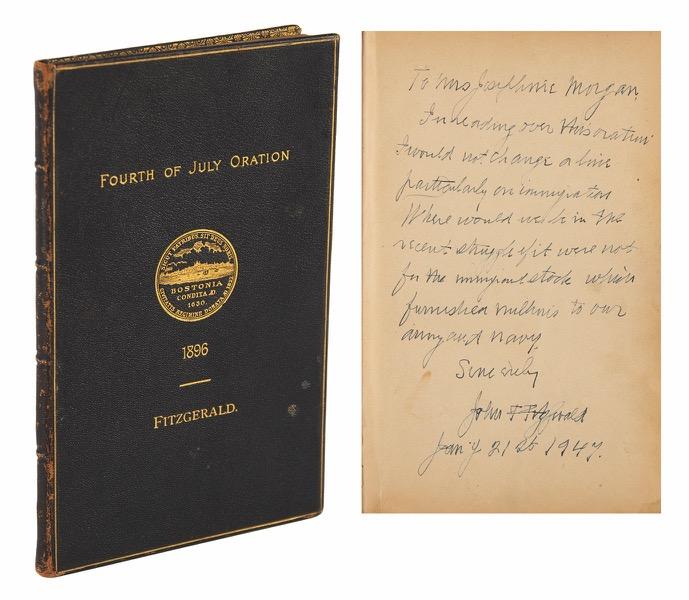 FOURTH OF JULY ORATION
SICUT PATRIBUS, SIT DEUS NOBIS
BOSTONIA
CONDITA A.D.
1630.
CIVITATIS REGIMINE DONATA A.D. 1822
1896
FITZGERALD.
To Mrs Josephine Morgan,
In reading over this oration
I would not change a line
particularly on immigration
Where would we be in the
recent struggle if it were not
for the immigrant stock which
furnished millions to our
army and navy
Sincerely
John F Fitzgerald
Jan'y 21st 1947.